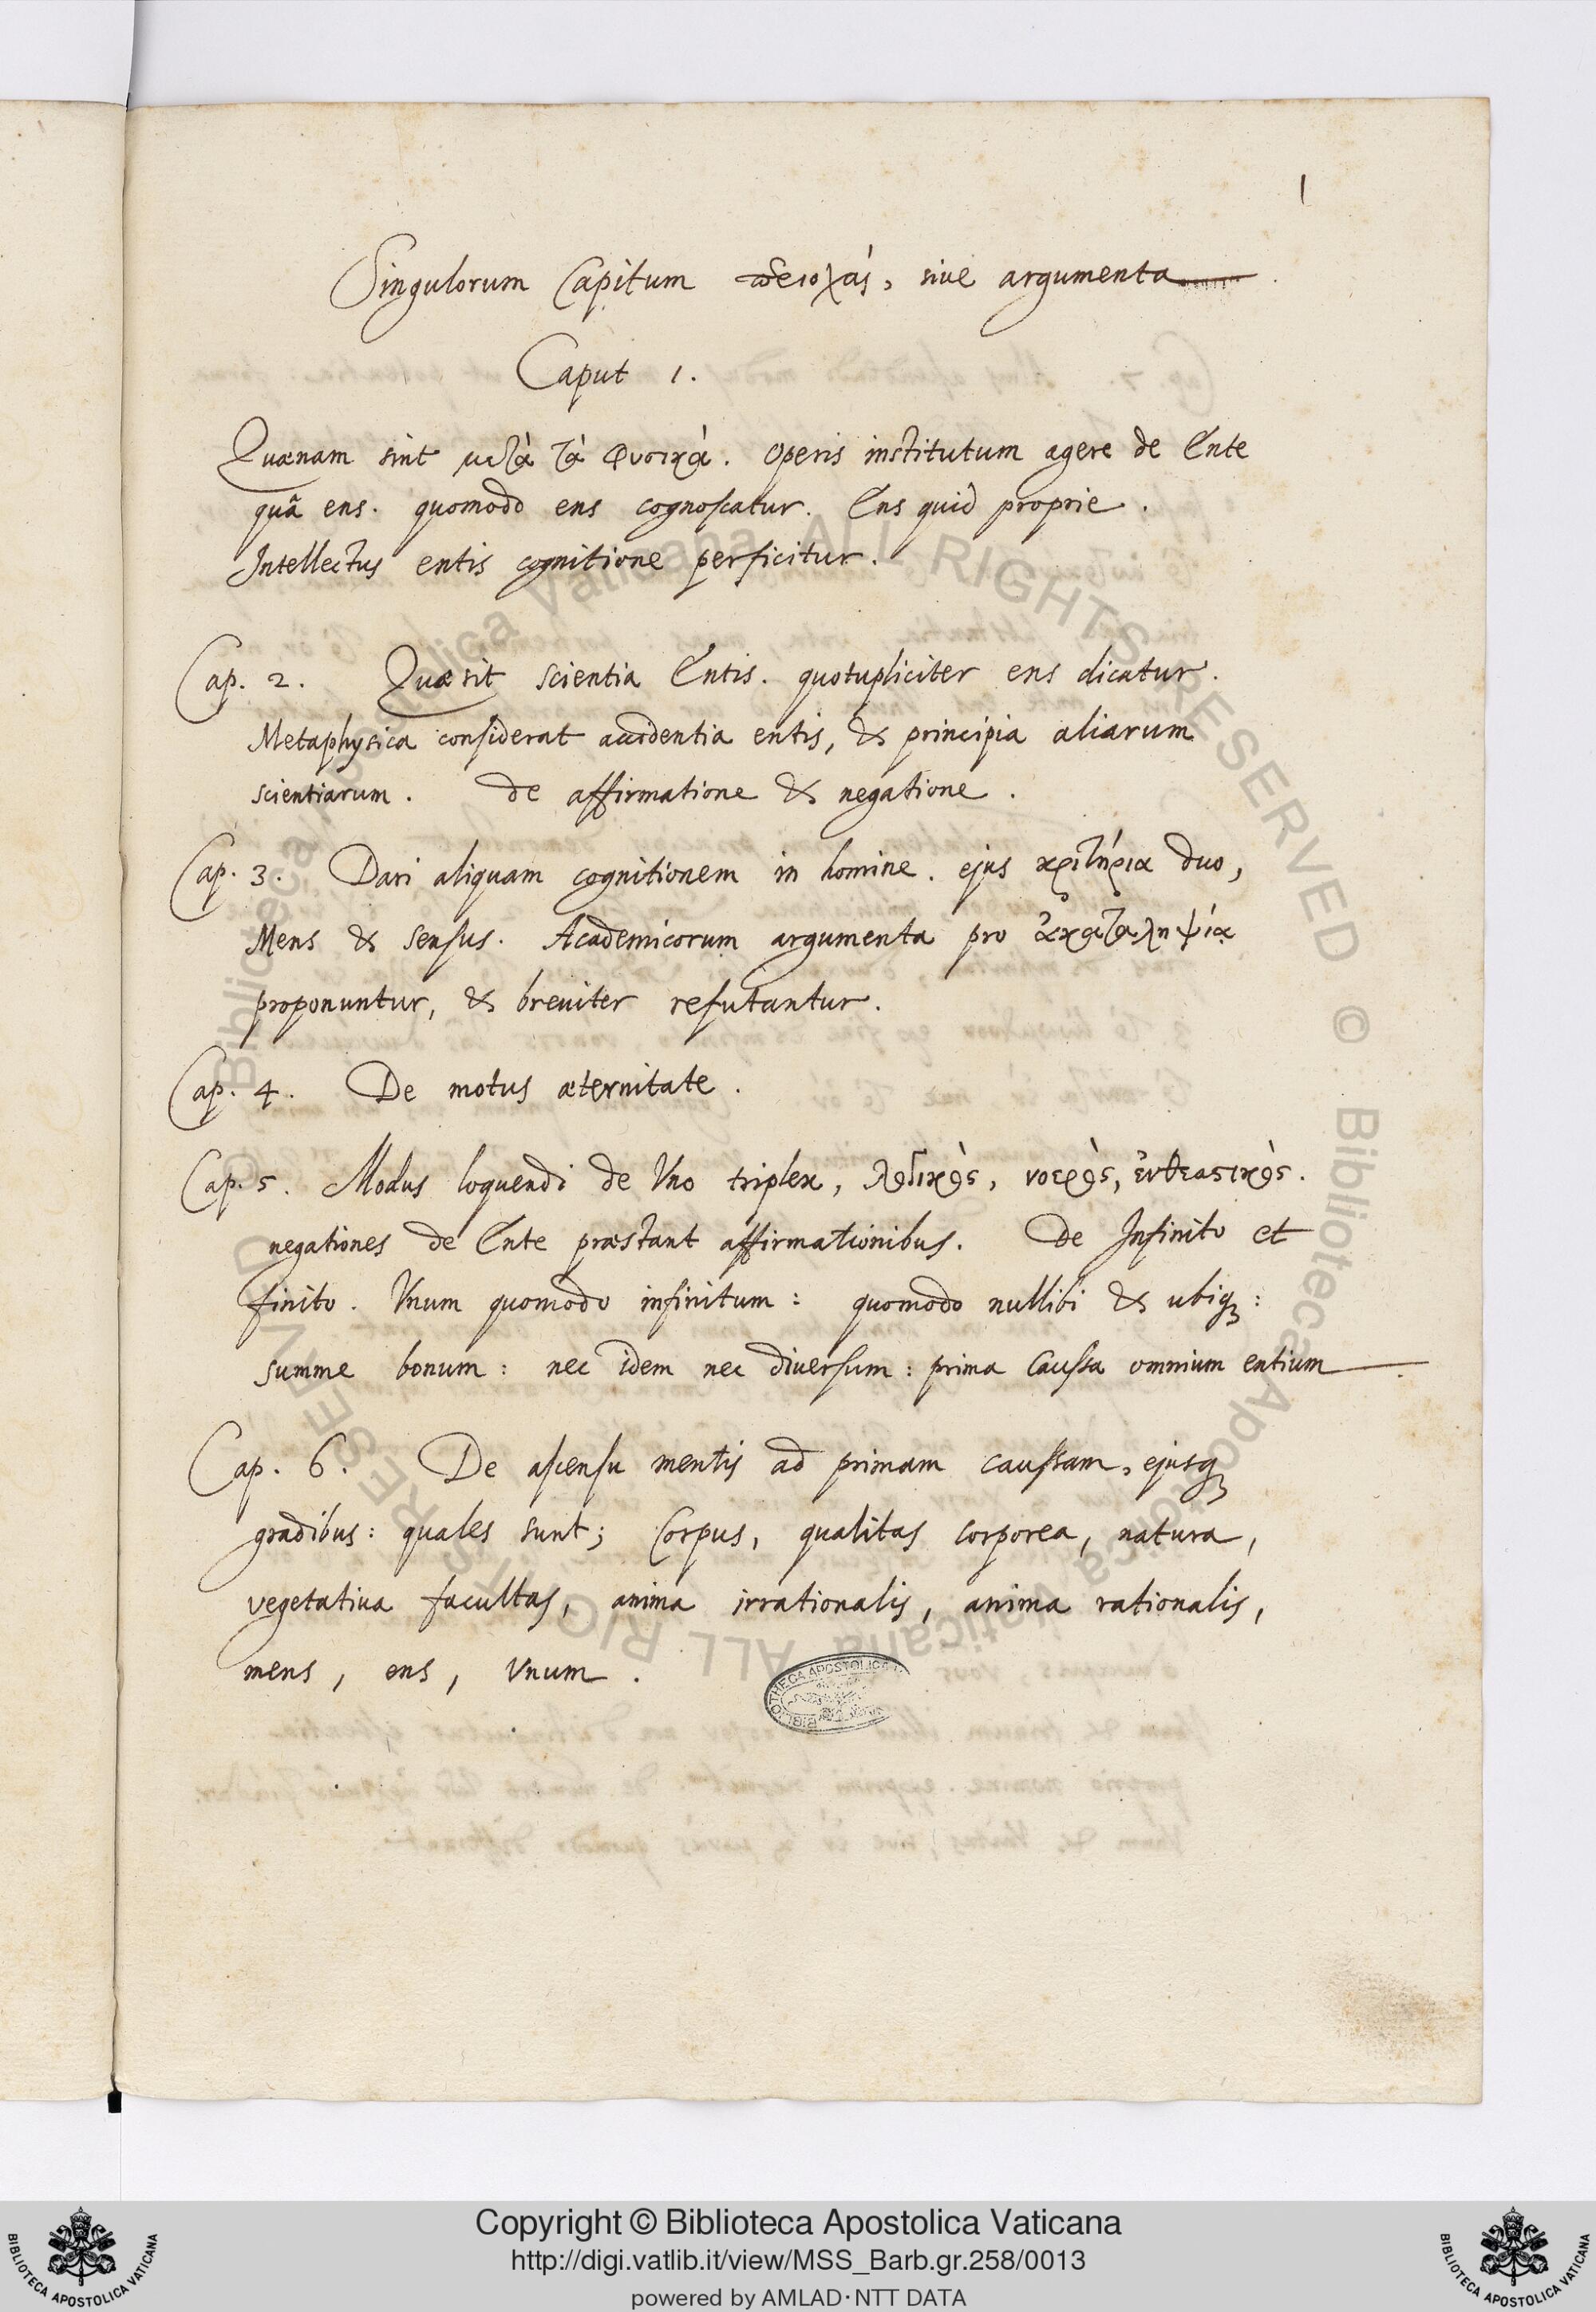 1
Singulorum Capitum περιοχάς, sive argumenta
Caput 1.
Quænam sint μετὰ τὰ φυσικά. operis institutum agere de Ente
quã ens. quomodo ens cognoscatur. Ens quid proprie.
Intellectus entis cognitione perficitur.
Cap. 2. Quæ sit scientia Entis. quotupliciter ens dicatur.
Metaphysica considerat accidentia entis, & principia aliarum
scientiarum. de affirmatione & negatione.
Cap. 3. Dari aliquam cognitionem in homine. ejus κριτήρια duo,
Mens & sensus. Academicorum argumenta pro ἀκαταληψίᾳ
proponuntur, & breviter refutantur.
Cap. 4. De motus æternitate.
Cap. 5. Modus loquendi de Vno triplex, λογικὸς, νοερὸς, ἐνθεαστικὸς.
negationes de Ente præstant affirmationibus. De Infinito et
finito. Vnum quomodo infinitum: quomodo nullibi & ubiq;:
summe bonum: nec idem nec diversum: prima Caussa omnium entium.
Cap. 6. De ascensu mentis ad primam caussam, ejusq;
gradibus: quales sunt; Corpus, qualitas corporea, natura,
vegetativa facultas, anima irrationalis, anima rationalis,
mens, ens, Vnum.
BIBLIOTHECA APOSTOLICA
© Biblioteca Apostolica Vaticana ALL RIGHTS RESERVED © Biblioteca Apostolica Vaticana ALL RIGHTS RESERVED
Copyright © Biblioteca Apostolica Vaticana
http://digi.vatlib.it/view/MSS_Barb.gr.258/0013
powered by AMLAD·NTT DATA
BIBLIOTECA APOSTOLICA VATICANA
BIBLIOTECA APOSTOLICA VATICANA